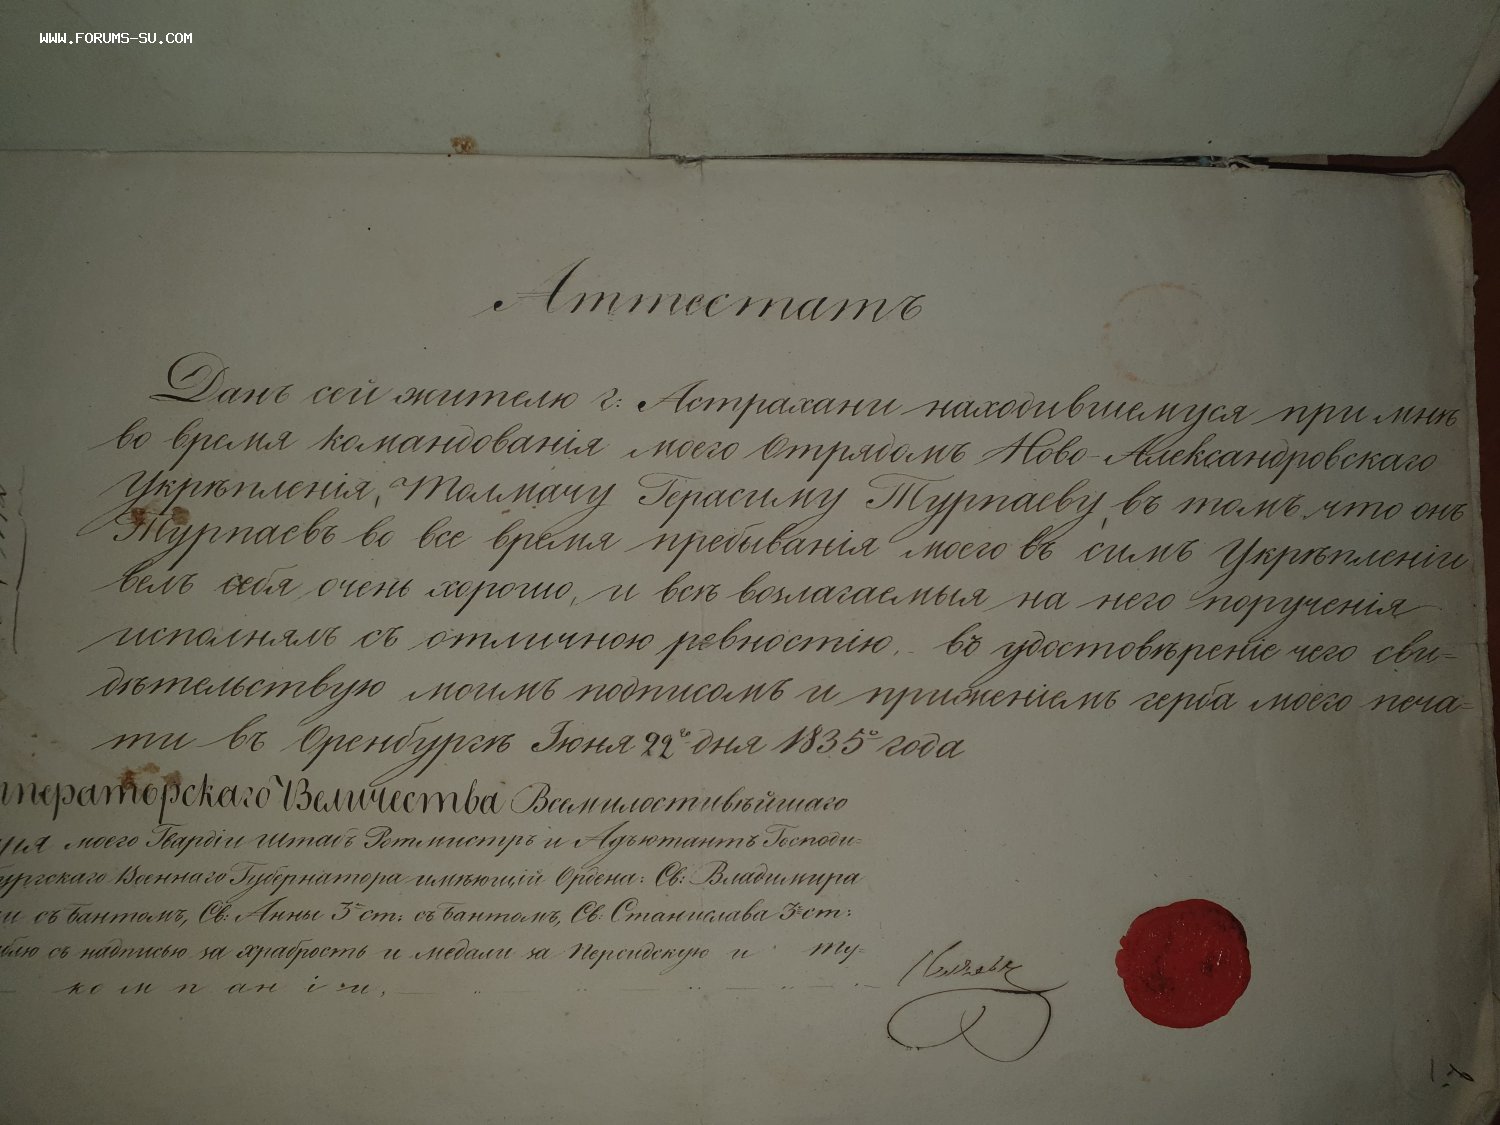 WWW.FORUMS-SU.COM
Аттестатъ
Данъ сей жителю г: Астрахани находившемуся при мнѣ
во время командованія моего Отрядомъ Ново-Александровскаго
Укрѣпленія, Толмачу Герасиму Турпаеву, въ томъ, что онъ
Турпаевъ во все время пребыванія моего въ симъ Укрѣпленіи
велъ себя очень хорошо, и всѣ возлагаемыя на него порученія
исполнялъ съ отличною ревностію, въ удостовѣреніе чего сви-
дѣтельствую моимъ подписомъ и приженіемъ герба моего печа-
ти въ Оренбургѣ Іюня 22го дня 1835го года
мператорскаго Величества Всемилостивѣйшаго
моего Гвардіи Штабъ Ротмистръ и Адъютантъ Господи-
бургскаго Военнаго Губернатора имѣющій Ордена: Св: Владимира
съ бантомъ, Св: Анны 3й ст: съ бантомъ, Св: Станислава 3й ст:
блю съ надписью за храбрость и медали за Персидскую и Ту-
компаніи,